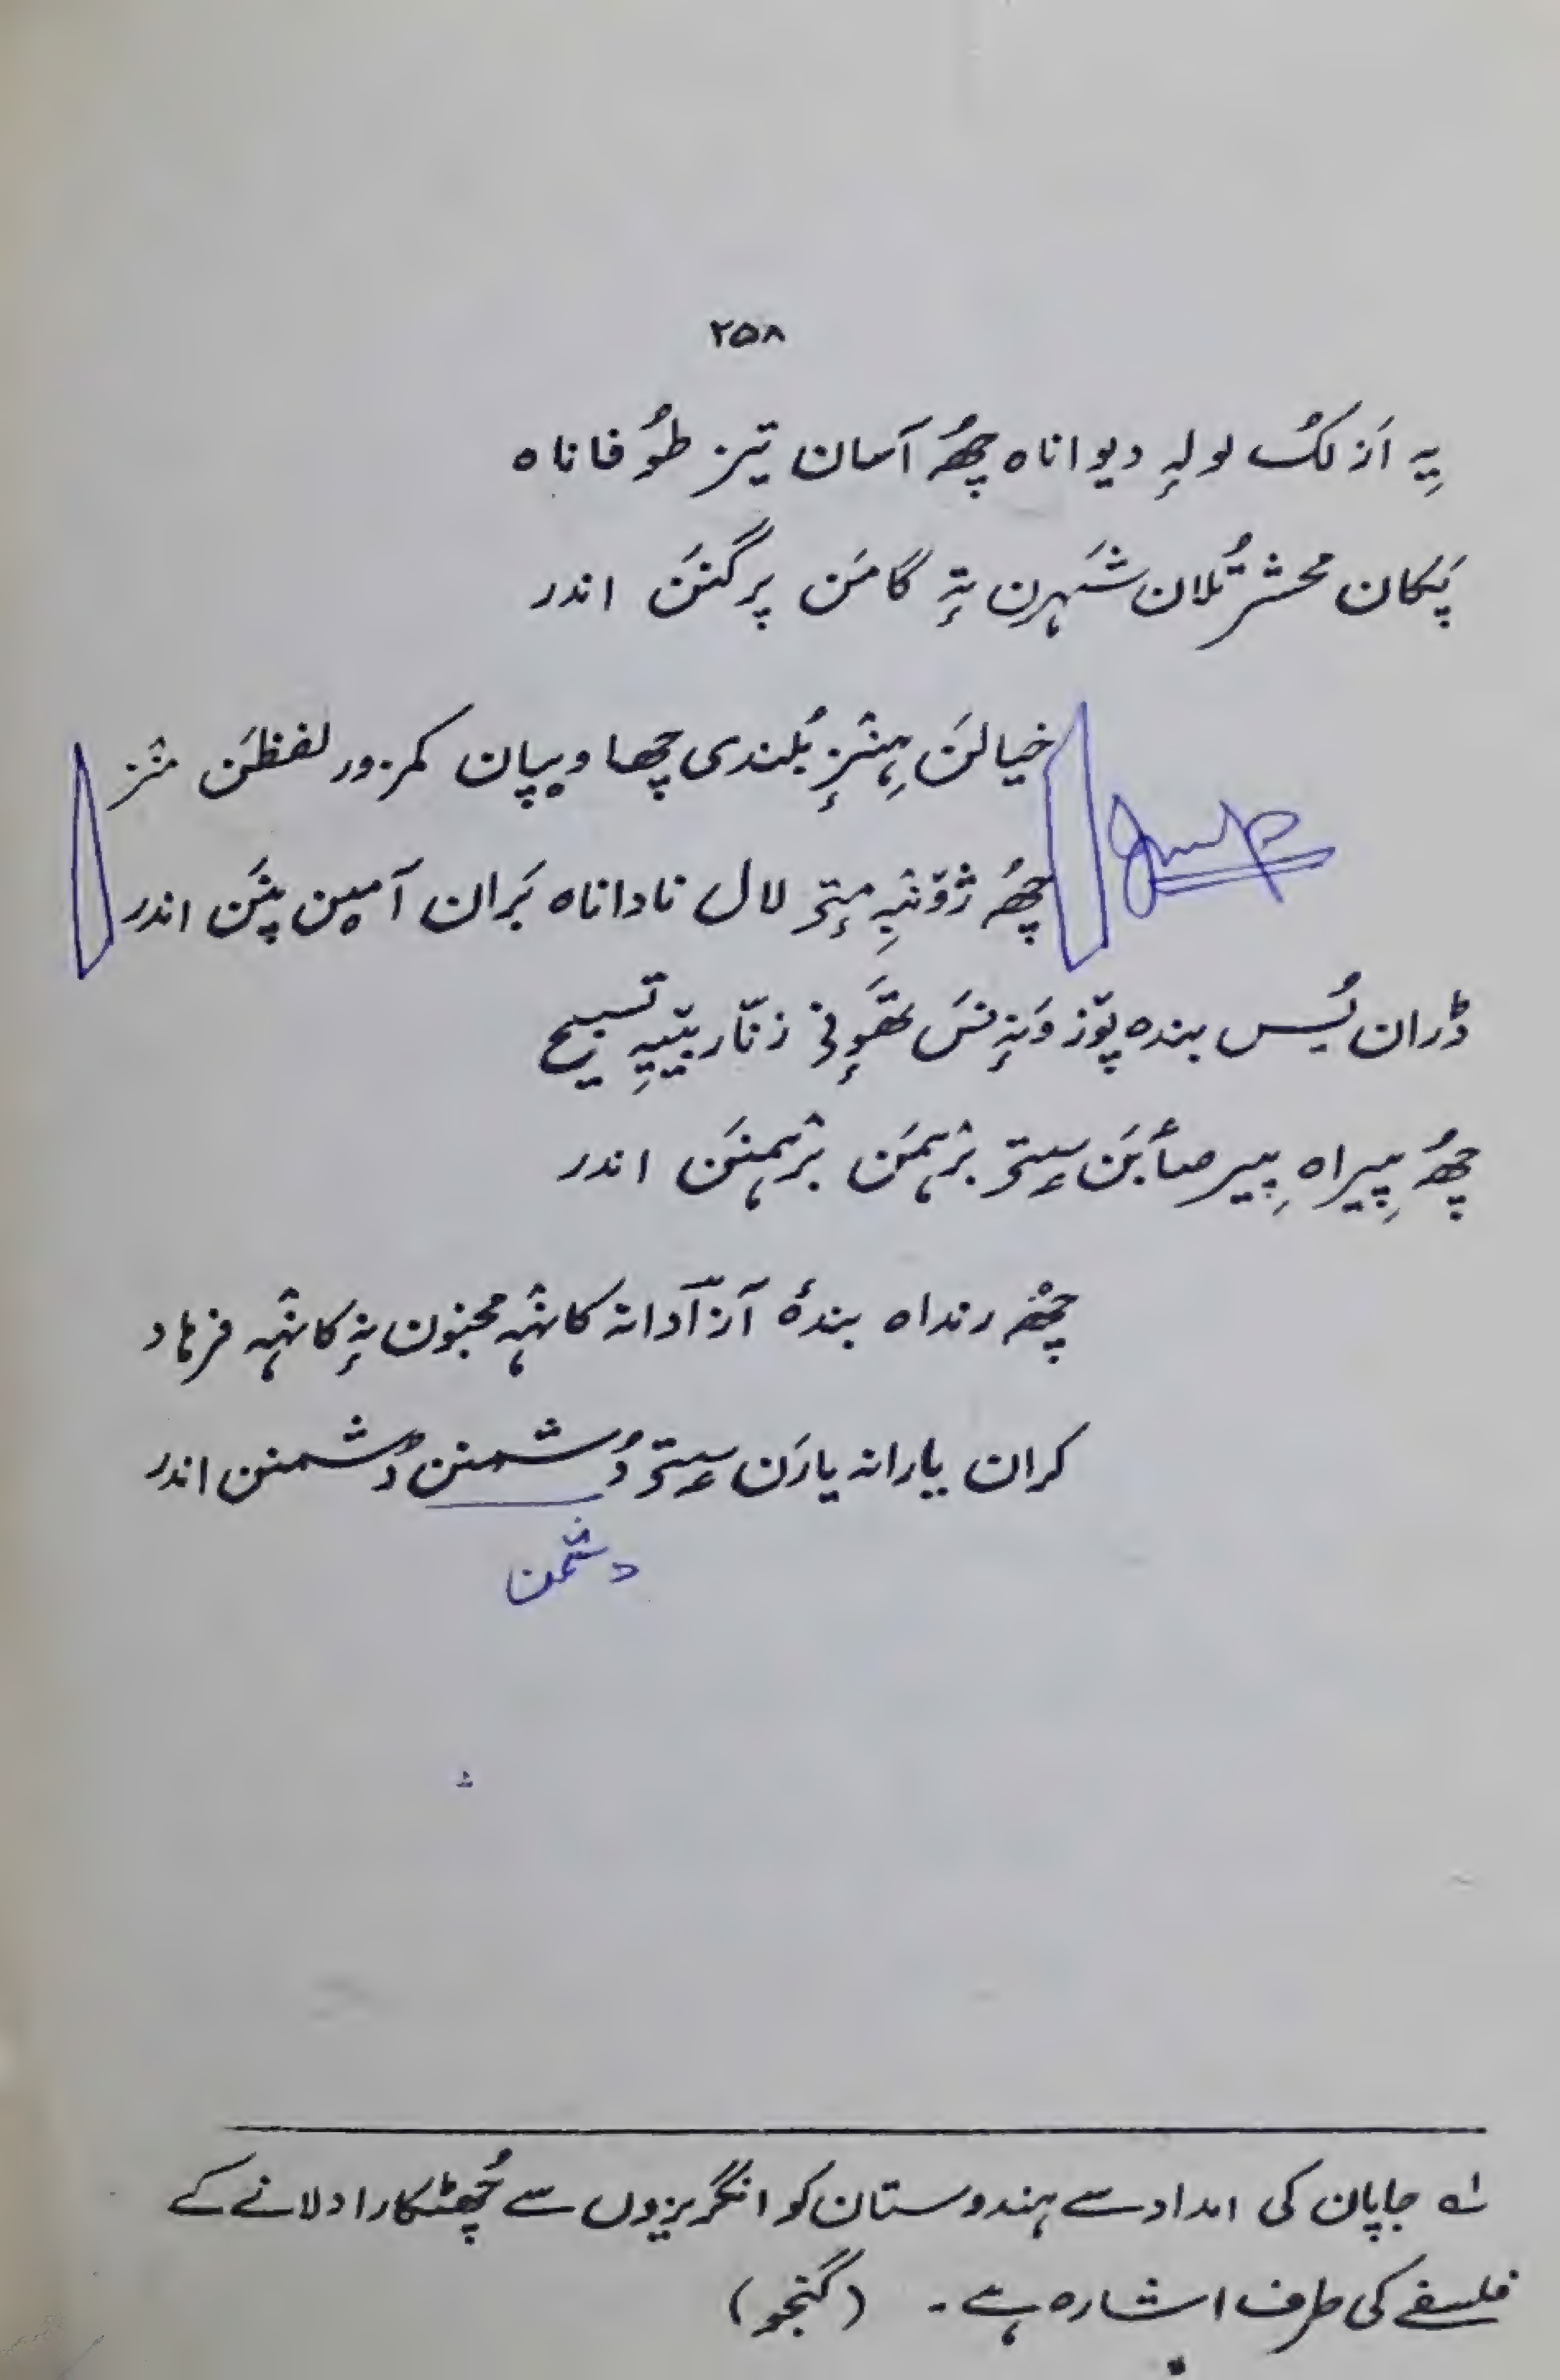 ۲۵۸
یِہ اَز لکُ لولہٕ دیواناہ چھُ آسان تیز طوُفاناہ
پَکان محشر تُلان شَہرن تہٕ گامَن پرگنَن اندر
خیالَن ہِنٛزٕ بُلندی چھا ویپان کمزور لفظَن منٛز
چھُ ژوٚنٛیہِ مٕتۍ لال ناداناہ بَران آمٮ۪ن پنَن اندر
ڈران یُس بندہ پوٚز وَنہٕ نسَ تھَوٕنی زنّار یتیہِ تسبیح
چھُ پِیراہ پِیر صأبَن سٟتۍ برٛہمَن برٛہمنَن اندر
چھُم رنداہ بندۂ آزآدانہ کانٛہہ مجنون نہٕ کانٛہہ فرہاد
کران یارانہ یارَن سٟتۍ دُشمنن دُشمنن اندر
دشمن
؎ جاپان کی امداد سے ہندوستان کو انگریزوں سے چُھٹکارا دلانے کے
فلسفے کی طرف اشارہ ہے۔ (گنجو)